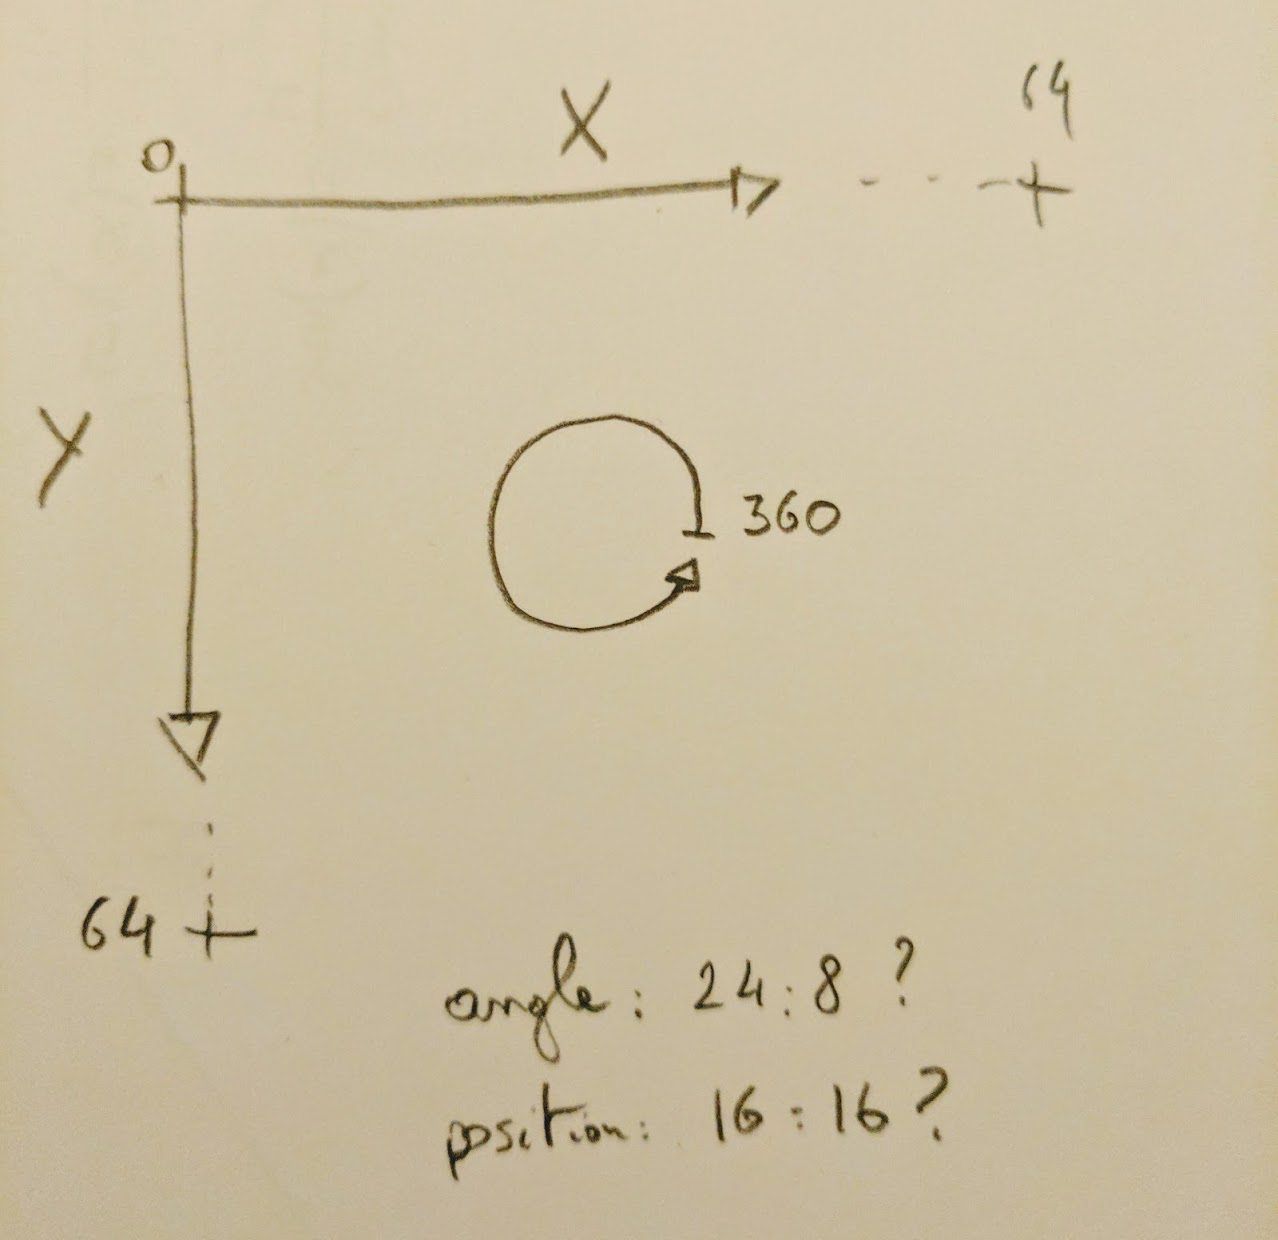 64
X
0
Y
360
64
angle: 24:8 ?
position: 16:16 ?